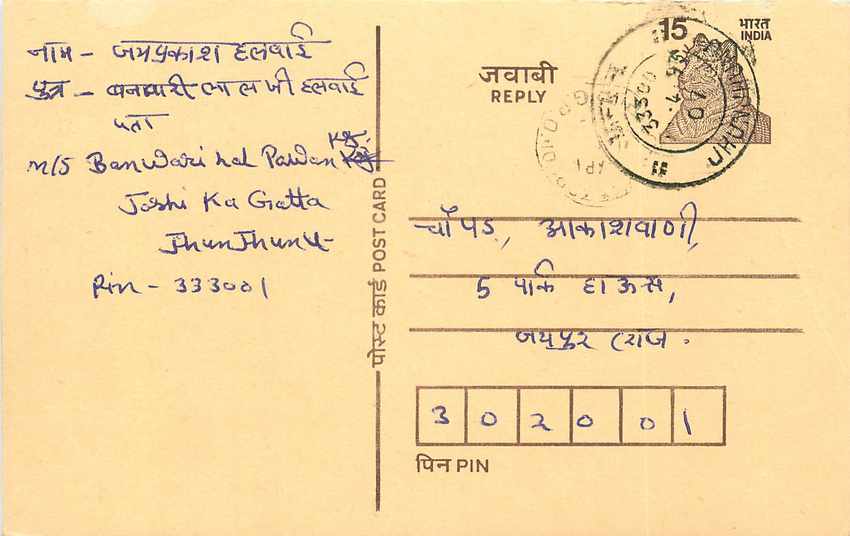 नाम - जयप्रकाश हलवाई
पुत्र - बनवारी लाल जी हलवाई
पता
M/S Banwari Lal Pawan Kr.
Joshi Ka Gatta
JhunJhunu
Pin - 333001
पोस्ट कार्ड POST CARD
जवाबी
REPLY
15
भारत
INDIA
चौपड, आकाशवाणी,
5 पार्क हाऊस,
जयपुर (राज.
302001
पिन PIN